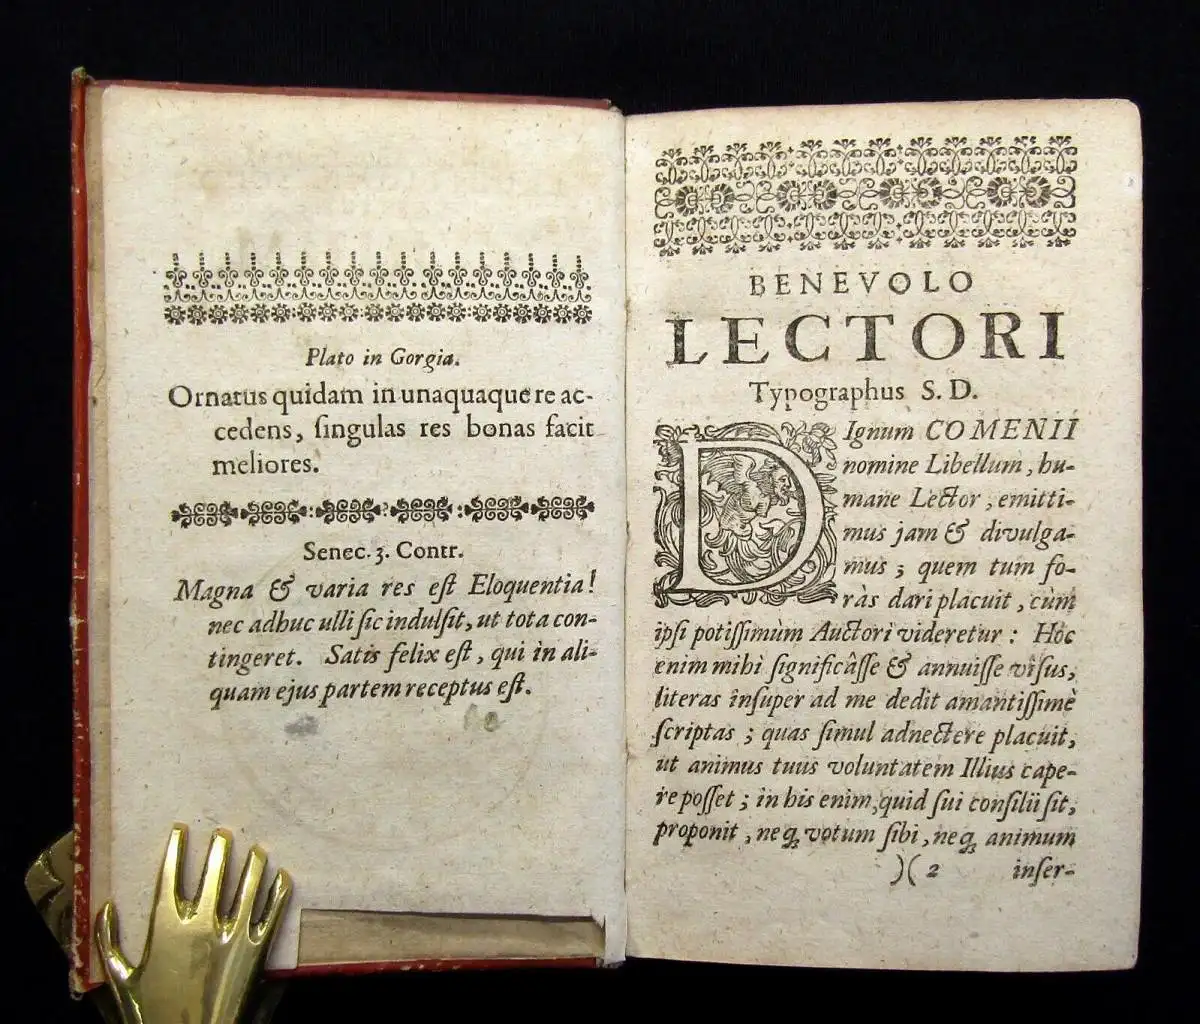 Plato in Gorgia.
Ornatus quidam in unaquaque re ac-
cedens, ſingulas res bonas facit
meliores.
Senec. 3. Contr.
Magna & varia res eſt Eloquentia!
nec adhuc ulli ſic indulſit, ut tota con-
tingeret. Satis felix eſt, qui in ali-
quam ejus partem receptus eſt.
BENEVOLO
LECTORI
Typographus S. D.
DIgnum COMENII
nomine Libellum, hu-
mane Lector, emitti-
mus jam & divulga-
mus; quem tum fo-
ràs dari placuit, cùm
ipſi potiſſimùm Auctori videretur: Hoc
enim mihi ſignificâſſe & annuiſſe viſus,
literas inſuper ad me dedit amantiſſimè
ſcriptas; quas ſimul adnectere placuit,
ut animus tuus voluntatem Illius cape-
re poſſet; in his enim, quid ſui conſilii ſit,
proponit, neqꝫ votum ſibi, neqꝫ animum
)( 2 inſer-